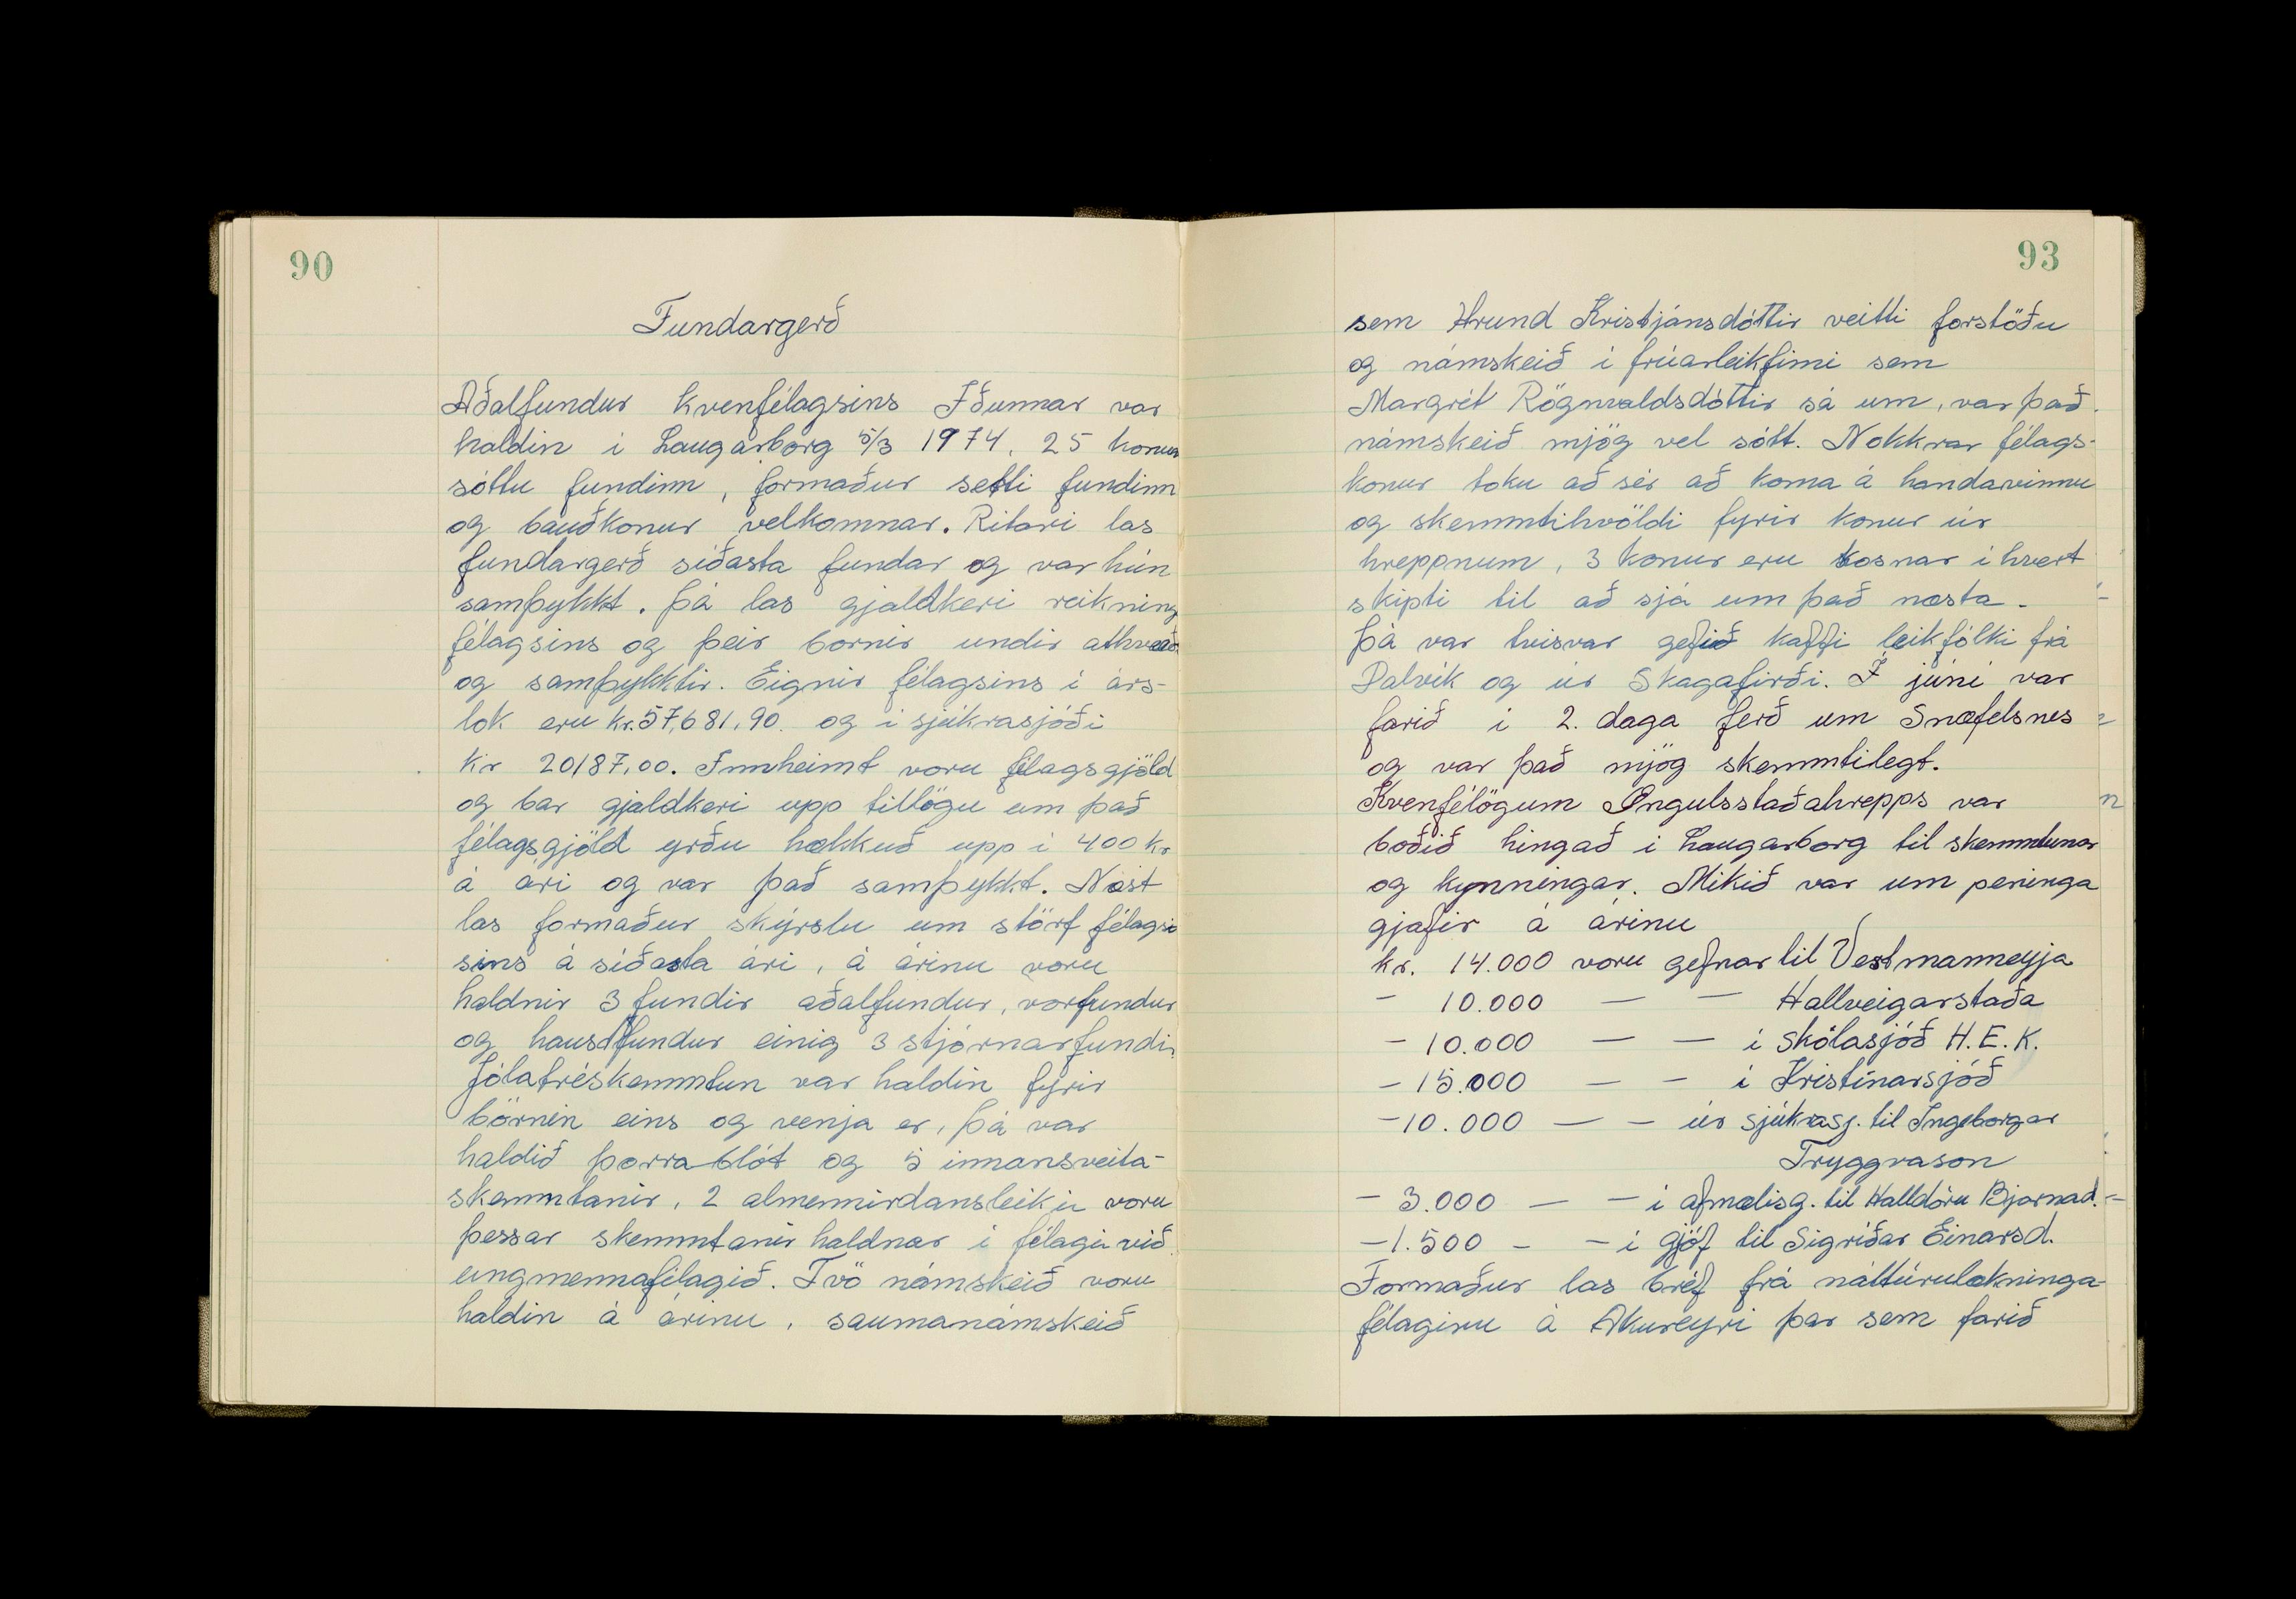 90
Fundargerð
Aðalfundur kvenfélagsins Iðunnar var
haldin i Laugarborg 5/3 1974, 25 konur
sóttu fundinn, formaður setti fundinn
og bauðkonur velkomnar. Ritari las
fundargerð síðasta fundar og var hún
samþykkt. Þá las gjaldkeri reikning
félagsins og þeir bornir undir
og samþykktir. Eignir félagsins í árs-
lok eru kr. 57,681,90. og i sjúkrasjóði
Kr 20187,00. Innheimt voru félagsgjöld
og bar gjaldkeri upp tillögu um það
félagsgjöld yrðu hækkuð upp í 400 kr
á ári og var það samþykkt. Næst
las formaður skýrslu um störf félags
sins á síðasta ári, á árinu voru
haldnir 3 fundir aðalfundur, vorfundur
og haustfundur einig 3 stjórnarfundir
Jólatréskemmtun var haldin fyrir
börnin eins og venja er, þá var
haldið þorrablót og 5 innansveita-
skemmtanir, 2 almennirdansleikir voru
þessar skemmtanir haldnar í félagi við
ungmennafélagið. Tvö námskeið voru
haldin á árinu, saumanámskeið
93
sem Hrund Kristjánsdóttir veitti forstöðu
og námskeið í frúarleikfimi sem
Margrét Rögnvaldsdóttir sá um, var það
námskeið mjög vel sótt. Nokkrar félags-
konur toku að sér að koma á handavinnu
og skemmtikvöldi fyrir konur úr
hreppnum, 3 konur eru kosnar í hvert
skipti til að sjá um það næsta.
Þá var tvisvar gefið kaffi leikfólki frá
Dalvík og úr Skagafirði. Í júní var
farið i 2. daga ferð um Snæfelsnes
og var það mjög skemmtilegt.
Kvenfélögum Öngulsstaðahrepps var
boðið hingað i Laugarborg til skemmtunar
og kynningar. Mikið var um peninga
gjafir á árinu
kr. 14.000 voru gefnar til Vestmanneyja
- 10.000 — — Hallveigarstaða
- 10.000 — — í skólasjóð H.E.K.
- 15.000 — - í Kristínarsjóð
- 10.000 — - úr sjúkrasj. til Ingeborgar
Tryggvason
- 3.000 — - í afmælisg. til Halldóru Bjarnad.
- 1.500 - - í gjöf til Sigríðar Einarsd.
Formaður las bréf frá náttúrulækninga-
félaginu á Akureyri þar sem farið